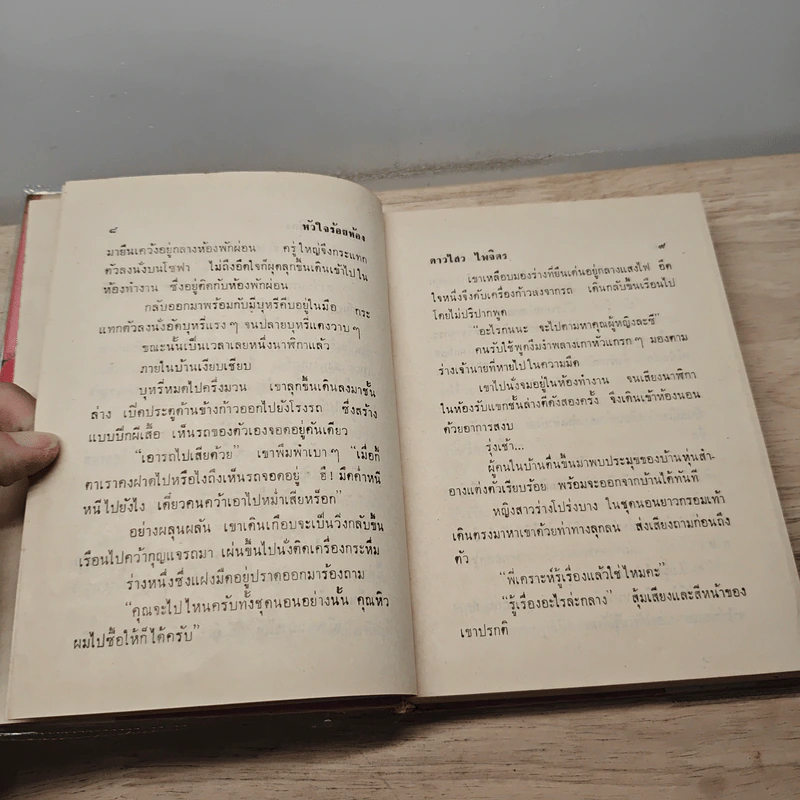 ๘
หัวใจร้อยห้อง
มายืนเคว้งอยู่กลางห้องพักผ่อน ครู่ใหญ่จึงกระแทก
ตัวลงนั่งบนโซฟา ไม่ถึงอึดใจก็ผุดลุกขึ้นเดินเข้าไปใน
ห้องทำงาน ซึ่งอยู่ติดกับห้องพักผ่อน
กลับออกมาพร้อมกับมีบุหรี่คีบอยู่ในมือ กระ
แทกตัวลงนั่งอัดบุหรี่แรงๆ จนปลายบุหรี่แดงวาบๆ
ขณะนั้นเป็นเวลาเลยหนึ่งนาฬิกาแล้ว
ภายในบ้านเงียบเชียบ
บุหรี่หมดไปครึ่งมวน เขาลุกขึ้นเดินลงมาชั้น
ล่าง เปิดประตูด้านข้างก้าวออกไปยังโรงรถ ซึ่งสร้าง
แบบปีกผีเสื้อ เห็นรถของตัวเองจอดอยู่คันเดียว
“เอารถไปเสียด้วย” เขาพึมพำเบาๆ “เมื่อกี้
ตาเราคงฝาดไปหรือไงถึงเห็นรถจอดอยู่ ฮึ! มืดค่ำหนี
หนีไปยังไง เดี๋ยวคนคว้าเอาไปหม่ำเสียหร็อก”
อย่างผลุนผลัน เขาเดินเกือบจะเป็นวิ่งกลับขึ้น
เรือนไปคว้ากุญแจรถมา เผ่นขึ้นไปนั่งติดเครื่องกระหึ่ม
ร่างหนึ่งซึ่งแฝงมืดอยู่ปราดออกมาร้องถาม
“คุณจะไปไหนครับทั้งชุดนอนอย่างนั้น คุณหิว
ผมไปซื้อให้ก็ได้ครับ”
ดาวไสว ไพจิตร
๙
เขาเหลือบมองร่างที่ยืนเด่นอยู่กลางแสงไฟ อึด
ใจหนึ่งจึงดับเครื่องก้าวลงจากรถ เดินกลับขึ้นเรือนไป
โดยไม่ปริปากพูด
“อะไรกันนะ จะไปตามหาคุณผู้หญิงละซี”
คนรับใช้พูดงึมงำพลางเกาหัวแกรกๆ มองตาม
ร่างเจ้านายที่หายไปในความมืด
เขาไปนั่งจมอยู่ในห้องทำงาน จนเสียงนาฬิกา
ในห้องรับแขกชั้นล่างตีดังสองครั้ง จึงเดินเข้าห้องนอน
ด้วยอาการสงบ
รุ่งเช้า...
ผู้คนในบ้านตื่นขึ้นมาพบประมุขของบ้านหุ่นสำ-
อางแต่งตัวเรียบร้อย พร้อมจะออกจากบ้านได้ทันที
หญิงสาวร่างโปร่งบาง ในชุดนอนยาวกรอมเท้า
เดินตรงมาหาเขาด้วยท่าทางลุกลน ส่งเสียงถามก่อนถึง
ตัว
“พี่เคราะห์รู้เรื่องแล้วใช่ไหมคะ”
“รู้เรื่องอะไรล่ะกลาง” สุ้มเสียงและสีหน้าของ
เขาปรกติ